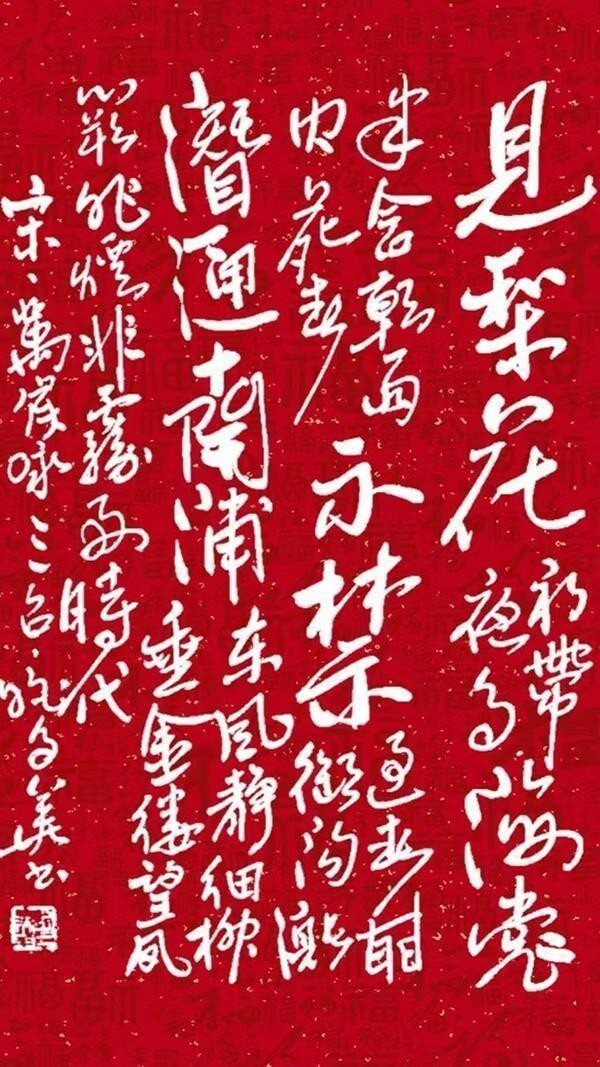 見梨花初帶夜月海棠
半含朝雨
内苑春不禁過青門御沟漲
潛通南浦东风静细柳
垂金缕望凤
阙非煙非霧好時代
宋、萬俟咏三台